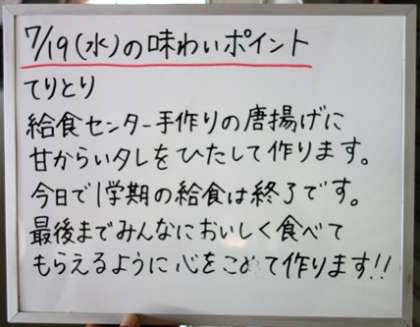 7/19(水)の味わいポイント
てりとり
給食センター手作りの唐揚げに
甘からいタレをひたして作ります。
今日で1学期の給食は終了です。
最後までみんなにおいしく食べて
もらえるように心をこめて作ります!!